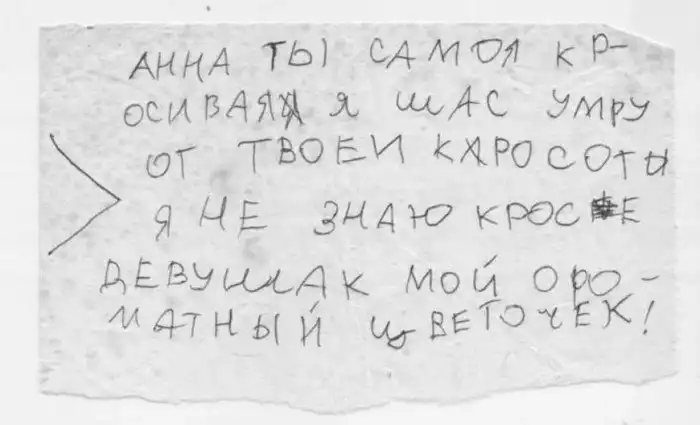 АННА ТЫ САМОЯ КР-
ОСИВАЯ Я ШАС УМРУ
ОТ ТВОЕЙ КАРОСОТЫ
Я НЕ ЗНАЮ КРОСЕ
ДЕВУШАК МОЙ ОРО-
МАТНЫЙ ЦВЕТОЧЕК!